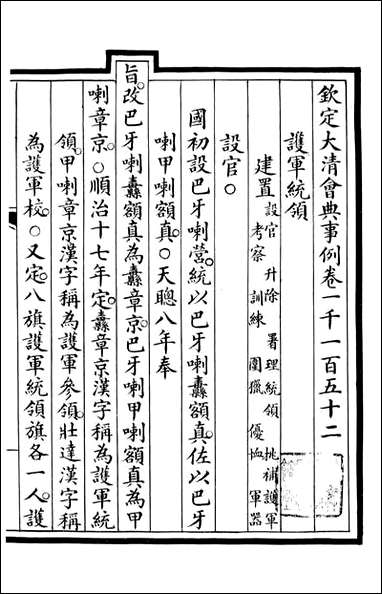 欽定大清會典事例卷一千一百五十二
護軍統領
建置設官 升除 署理統領 挑補護軍
考察 訓練 圍獵 優恤 軍器
設官○
國初設巴牙喇營統以巴牙喇纛額真佐以巴牙
喇甲喇額真○天聰八年奉
旨改巴牙喇纛額真為纛章京巴牙喇甲喇額真為甲
喇章京○順治十七年定纛章京漢字稱為護軍統
領甲喇章京漢字稱為護軍參領壯達漢字稱
為護軍校○又定八旗護軍統領旗各一人護